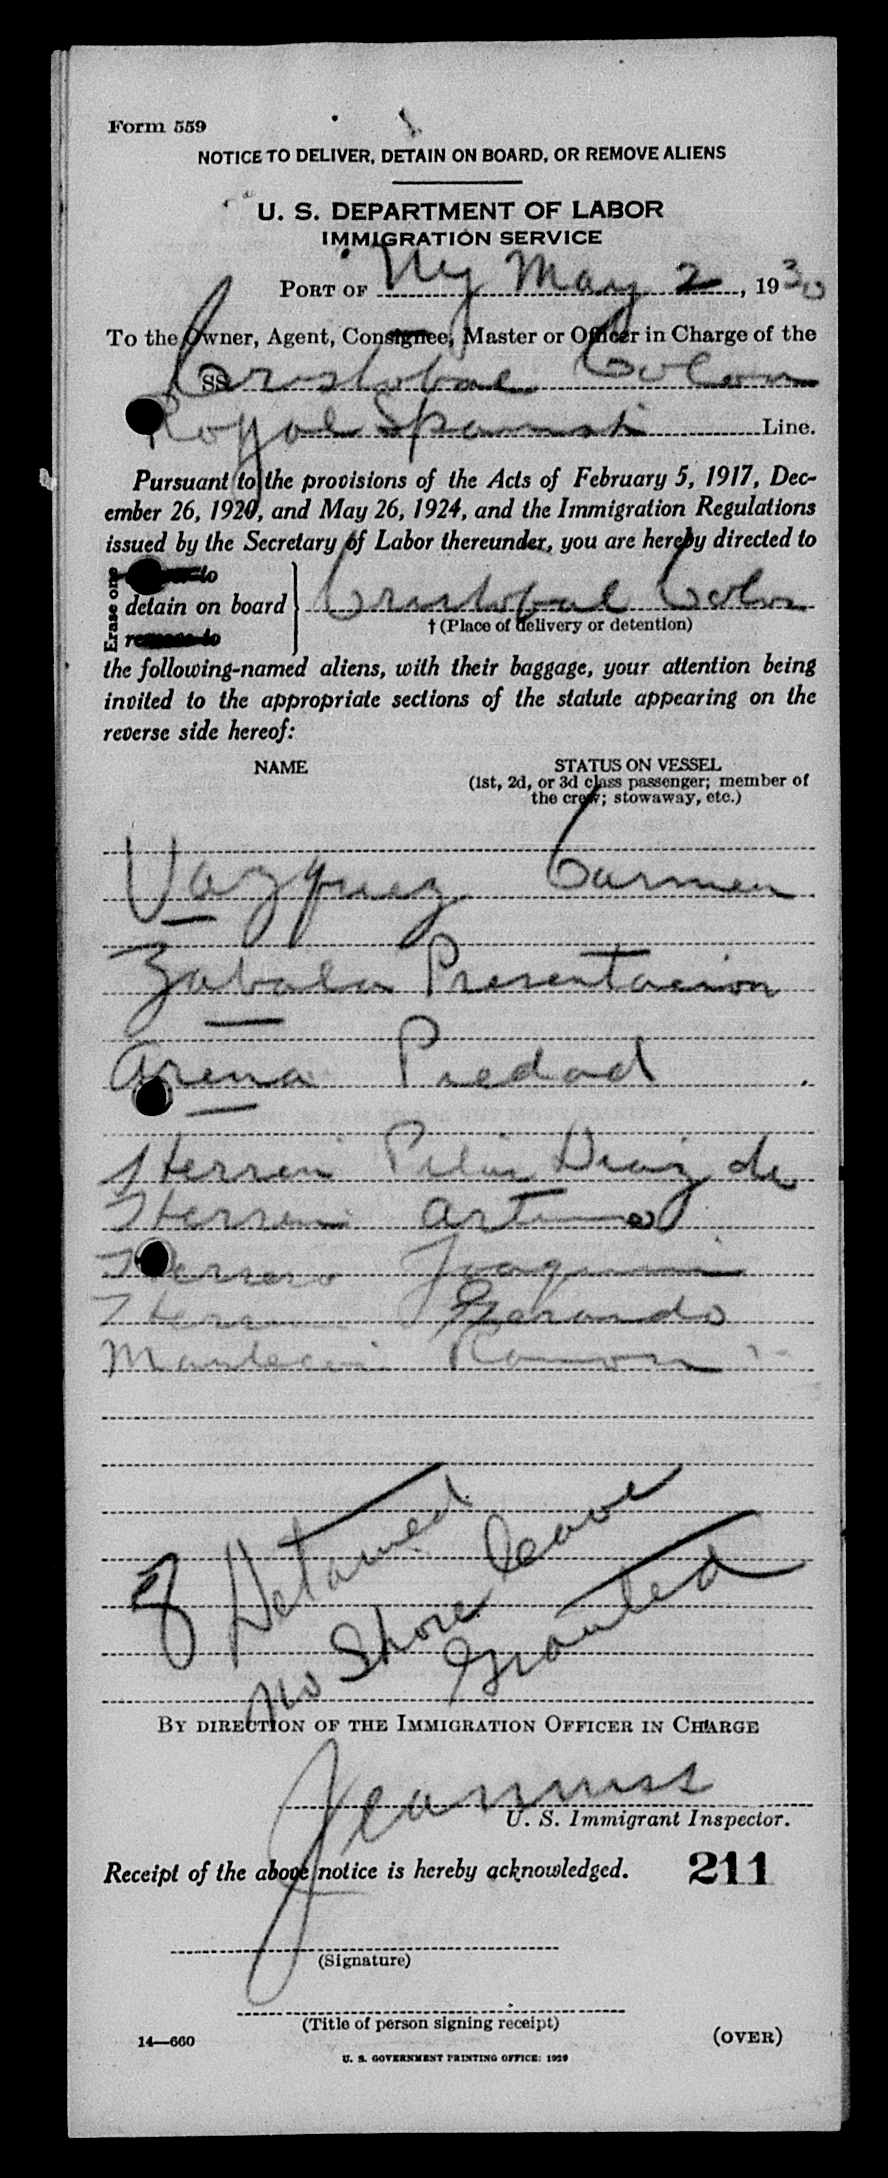 Form 559
NOTICE TO DELIVER, DETAIN ON BOARD, OR REMOVE ALIENS
U. S. DEPARTMENT OF LABOR
IMMIGRATION SERVICE
PORT OF NY May 2, 1930
To the Owner, Agent, Consignee, Master or Officer in Charge of the
SS Cristobal Colon
Royal Spanish Line.
Pursuant to the provisions of the Acts of February 5, 1917, Dec-
ember 26, 1920, and May 26, 1924, and the Immigration Regulations
issued by the Secretary of Labor thereunder, you are hereby directed to
Erase one
to
detain on board } Cristobal Colon
remove to
† (Place of delivery or detention)
the following-named aliens, with their baggage, your attention being
invited to the appropriate sections of the statute appearing on the
reverse side hereof:
NAME STATUS ON VESSEL
(1st, 2d, or 3d class passenger; member of
the crew; stowaway, etc.)
Vazquez Carmen
Zabala Presentacion
Arena Piedad
Herrero Pilar Diaz de
Herrero Arturo
Herrero Joaquin
Gerardo
Ramon
8 Detained
No Shore leave
Granted
BY DIRECTION OF THE IMMIGRATION OFFICER IN CHARGE
U. S. Immigrant Inspector.
Receipt of the above notice is hereby acknowledged. 211
(Signature)
(Title of person signing receipt)
14—660 (OVER)
U. S. GOVERNMENT PRINTING OFFICE: 1929